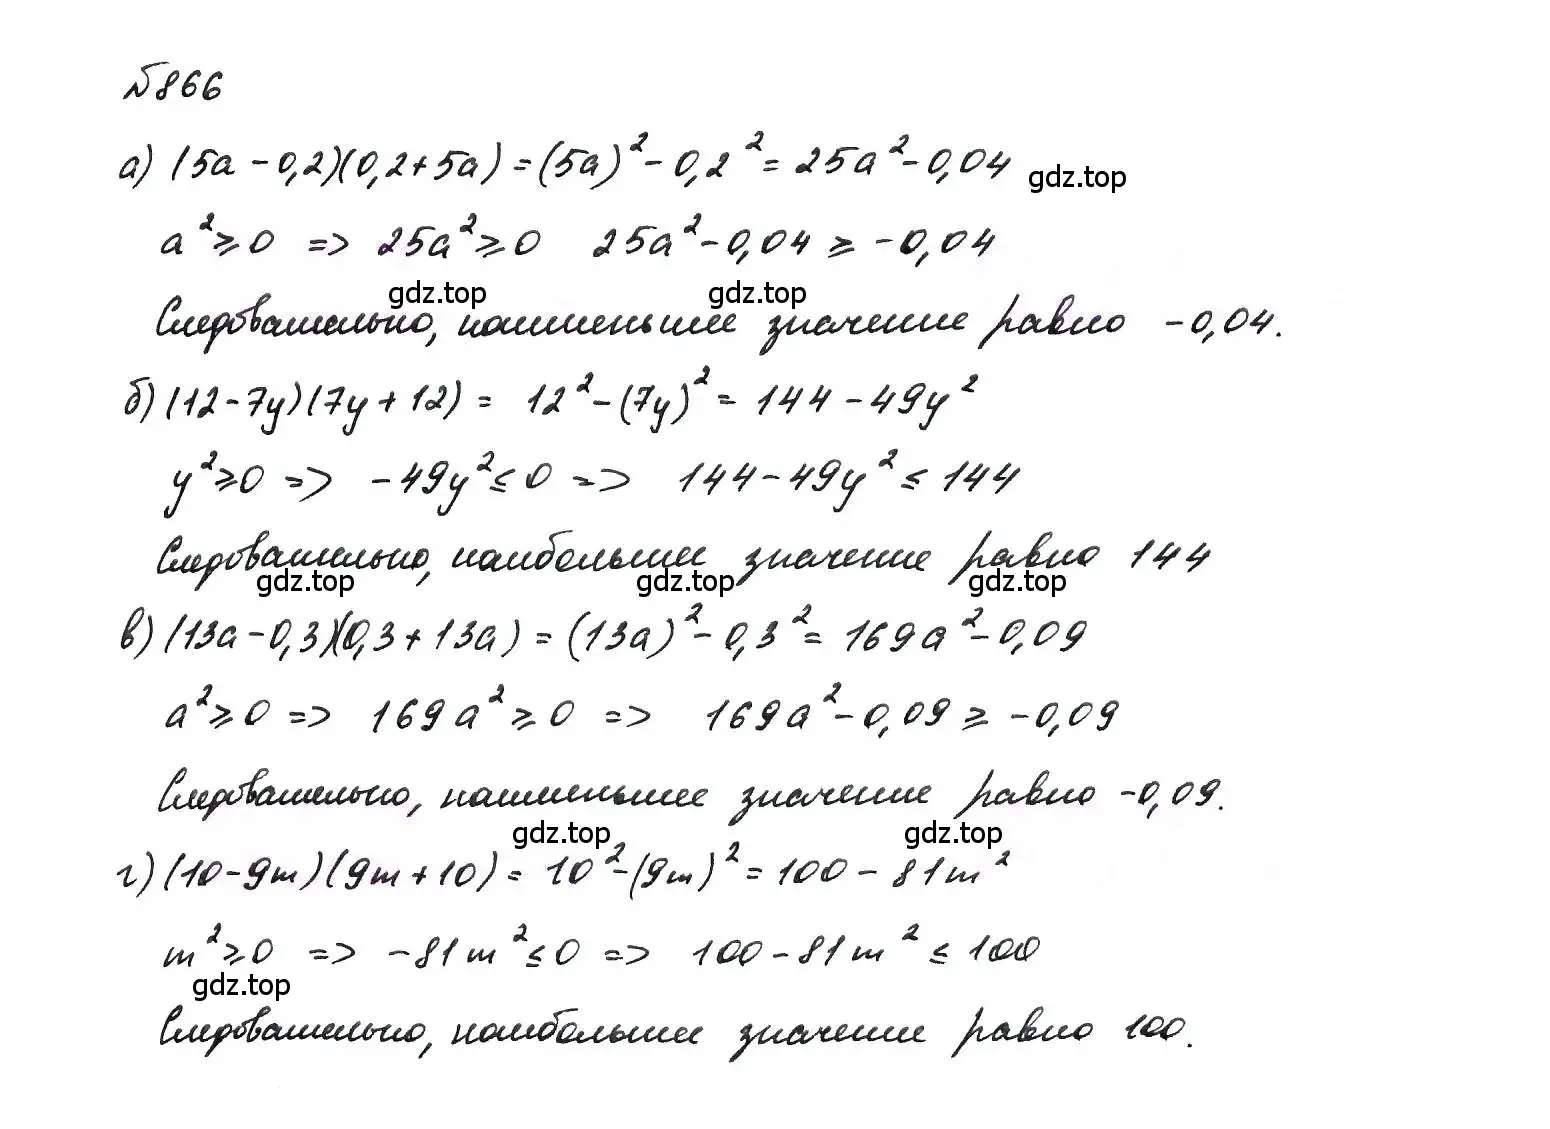 №866
а) (5a - 0,2)(0,2 + 5a) = (5a)² - 0,2² = 25a² - 0,04
gdz.top
a² ≥ 0 => 25a² ≥ 0 25a² - 0,04 ≥ -0,04
gdz.top gdz.top
Следовательно, наименьшее значение равно -0,04.
б) (12 - 7y)(7y + 12) = 12² - (7y)² = 144 - 49y²
y² ≥ 0 => -49y² ≤ 0 => 144 - 49y² ≤ 144
Следовательно, наибольшее значение равно 144
gdz.top gdz.top gdz.top
в) (13a - 0,3)(0,3 + 13a) = (13a)² - 0,3² = 169a² - 0,09
a² ≥ 0 => 169a² ≥ 0 => 169a² - 0,09 ≥ -0,09
Следовательно, наименьшее значение равно -0,09.
gdz.top gdz.top
г) (10 - 9m)(9m + 10) = 10² - (9m)² = 100 - 81m²
m² ≥ 0 => -81m² ≤ 0 => 100 - 81m² ≤ 100
gdz.top
Следовательно, наибольшее значение равно 100.